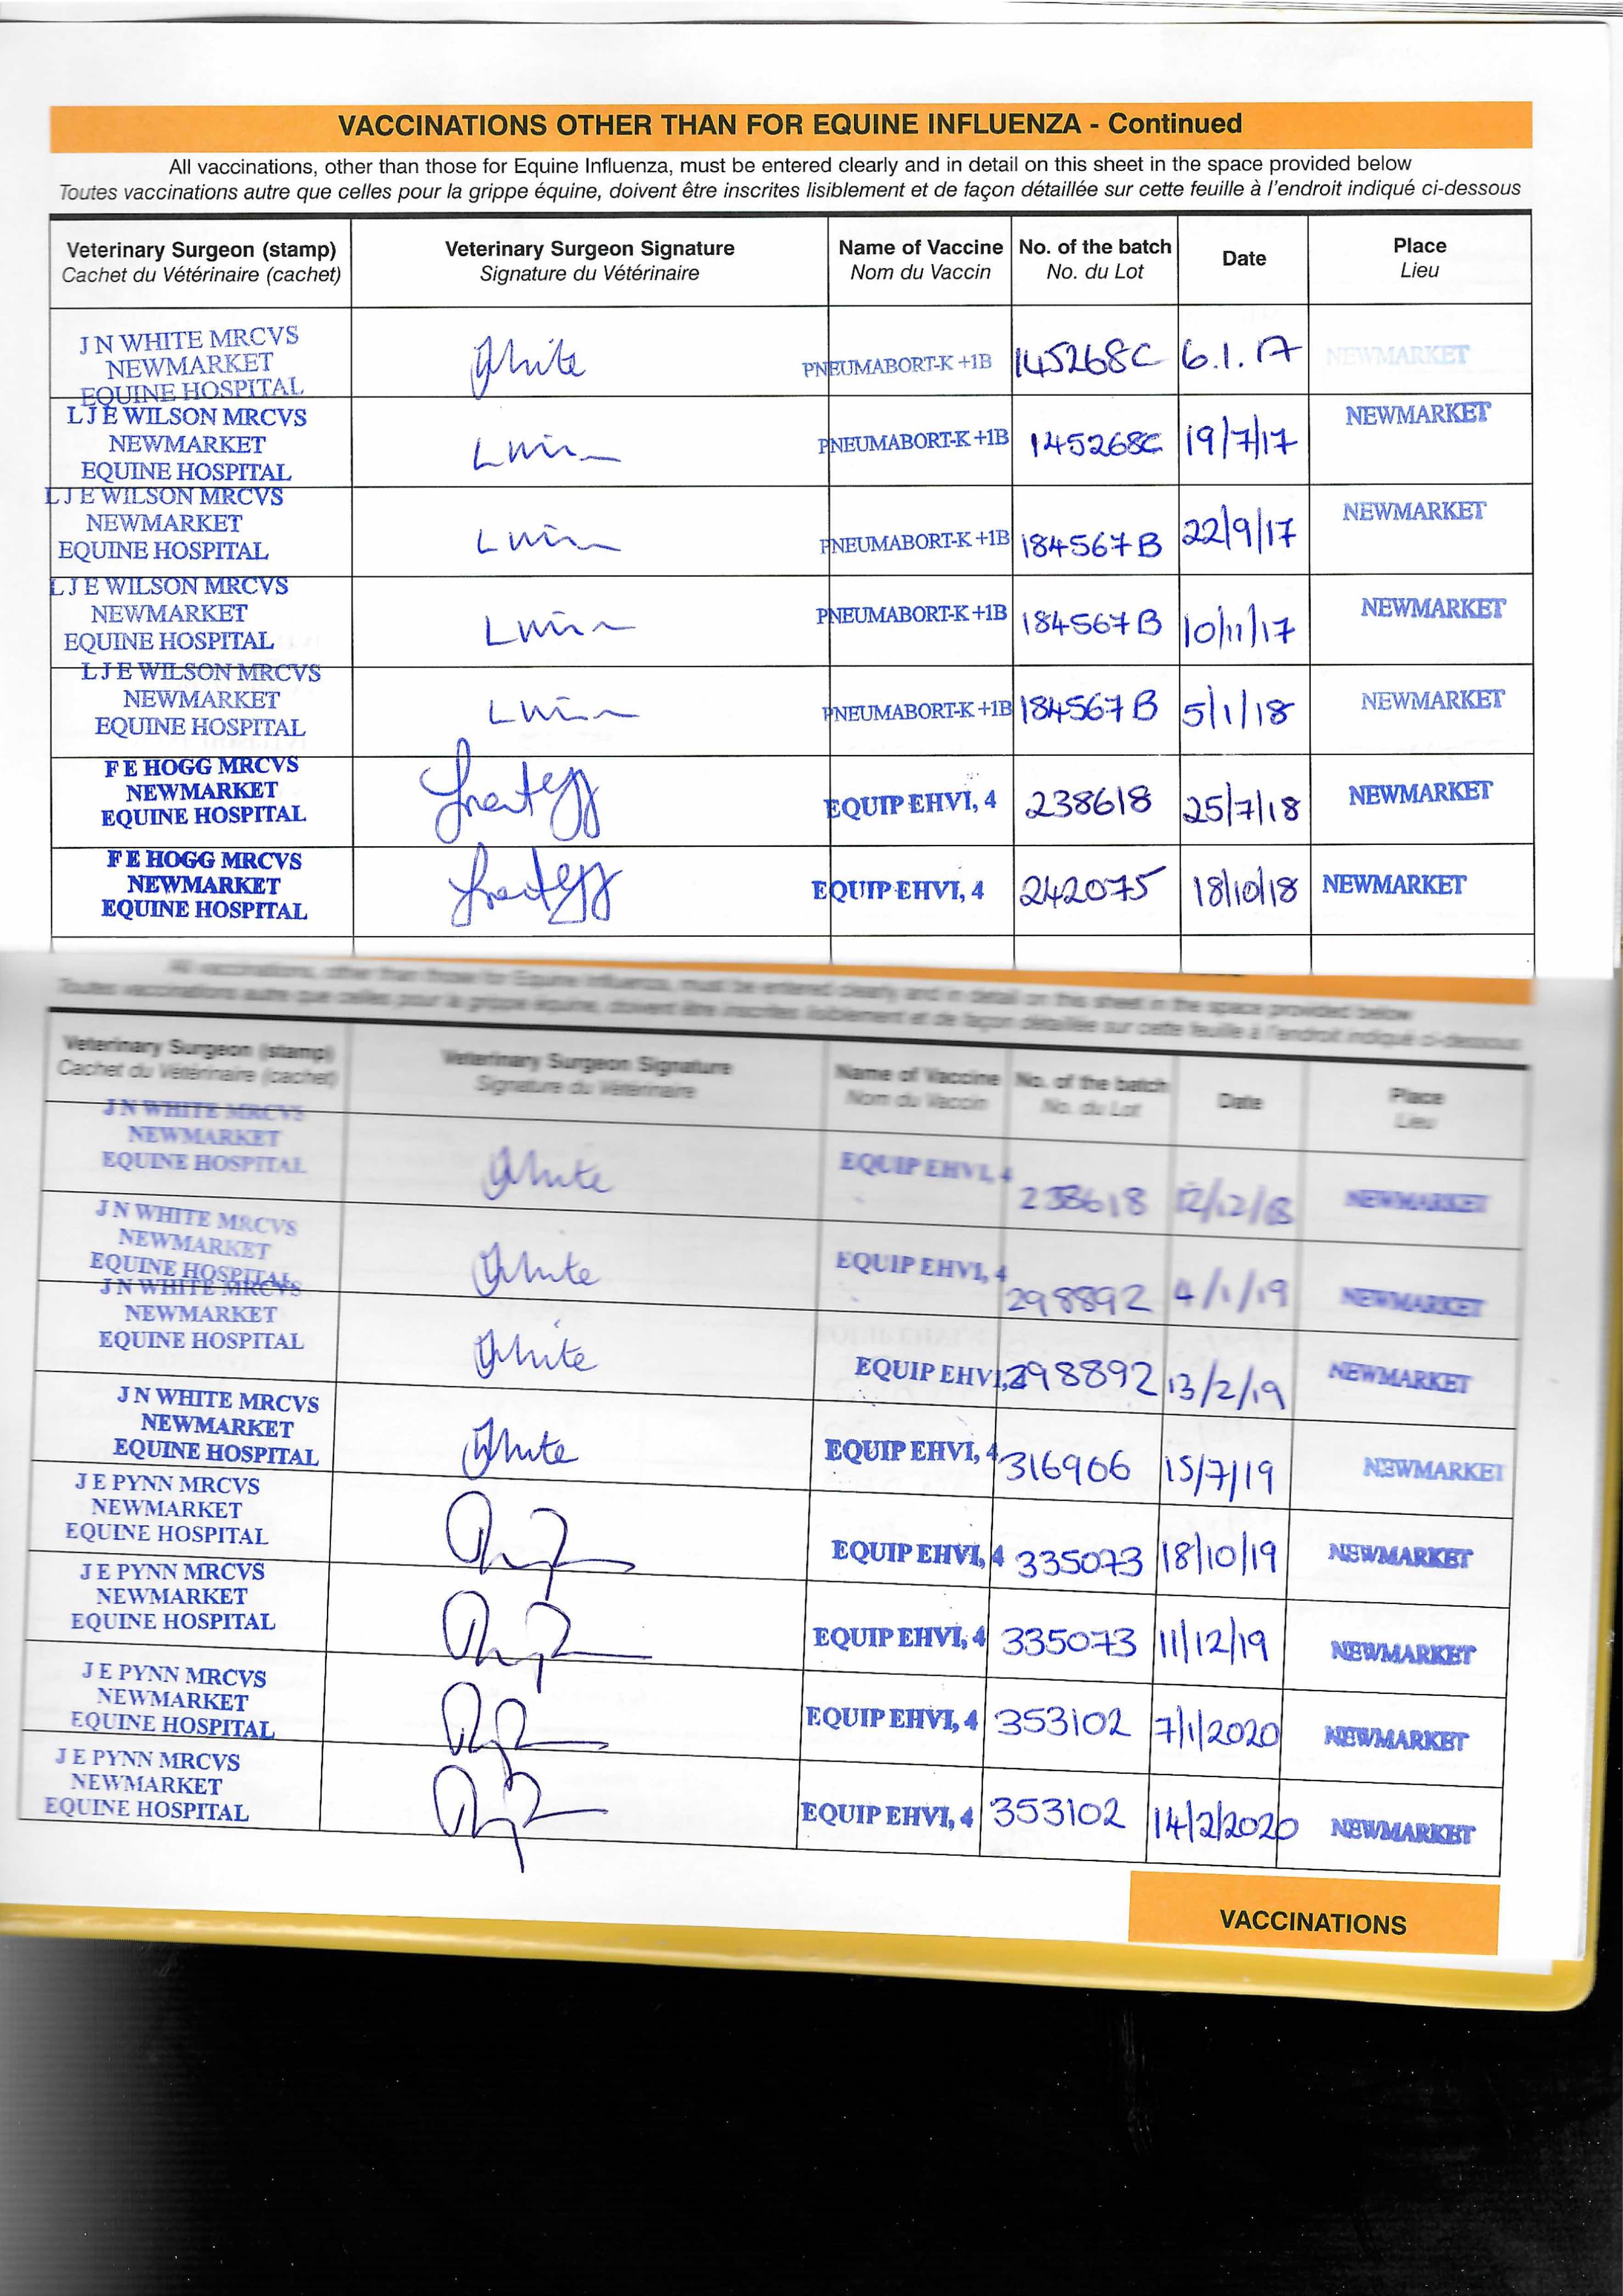 VACCINATIONS OTHER THAN FOR EQUINE INFLUENZA - Continued
All vaccinations, other than those for Equine Influenza, must be entered clearly and in detail on this sheet in the space provided below
Toutes vaccinations autre que celles pour la grippe équine, doivent être inscrites lisiblement et de façon détaillée sur cette feuille à l'endroit indiqué ci-dessous
Veterinary Surgeon (stamp) Veterinary Surgeon Signature Name of Vaccine No. of the batch Date Place
Cachet du Vétérinaire (cachet) Signature du Vétérinaire Nom du Vaccin No. du Lot Lieu
J N WHITE MRCVS
NEWMARKET White PNEUMABORT-K +1B 145268C 6.1.17 NEWMARKET
EQUINE HOSPITAL
L J E WILSON MRCVS
NEWMARKET PNEUMABORT-K +1B 145268C 19/7/17 NEWMARKET
EQUINE HOSPITAL
L J E WILSON MRCVS
NEWMARKET PNEUMABORT-K +1B 184567B 22/9/17 NEWMARKET
EQUINE HOSPITAL
L J E WILSON MRCVS
NEWMARKET PNEUMABORT-K +1B 184567B 10/11/17 NEWMARKET
EQUINE HOSPITAL
L J E WILSON MRCVS
NEWMARKET PNEUMABORT-K +1B 184567B 5/1/18 NEWMARKET
EQUINE HOSPITAL
F E HOGG MRCVS
NEWMARKET EQUIP EHV1, 4 238618 25/7/18 NEWMARKET
EQUINE HOSPITAL
F E HOGG MRCVS
NEWMARKET EQUIP EHV1, 4 242075 18/10/18 NEWMARKET
EQUINE HOSPITAL
All vaccinations, other than those for Equine Influenza, must be entered clearly and in detail on this sheet in the space provided below
Toutes vaccinations autre que celles pour la grippe équine, doivent être inscrites lisiblement et de façon détaillée sur cette feuille à l'endroit indiqué ci-dessous
Veterinary Surgeon (stamp) Veterinary Surgeon Signature Name of Vaccine No. of the batch Date Place
Cachet du Vétérinaire (cachet) Signature du Vétérinaire Nom du Vaccin No. du Lot Lieu
J N WHITE MRCVS
NEWMARKET White EQUIP EHV1, 4 238618 12/12/18 NEWMARKET
EQUINE HOSPITAL
J N WHITE MRCVS
NEWMARKET White EQUIP EHV1, 4 298892 4/1/19 NEWMARKET
EQUINE HOSPITAL
J N WHITE MRCVS
NEWMARKET White EQUIP EHV1, 298892 13/2/19 NEWMARKET
EQUINE HOSPITAL
J N WHITE MRCVS
NEWMARKET White EQUIP EHV1, 4 316906 15/7/19 NEWMARKET
EQUINE HOSPITAL
J E PYNN MRCVS
NEWMARKET EQUIP EHV1, 4 335073 18/10/19 NEWMARKET
EQUINE HOSPITAL
J E PYNN MRCVS
NEWMARKET EQUIP EHV1, 4 335073 11/12/19 NEWMARKET
EQUINE HOSPITAL
J E PYNN MRCVS
NEWMARKET EQUIP EHV1, 4 353102 7/1/2020 NEWMARKET
EQUINE HOSPITAL
J E PYNN MRCVS
NEWMARKET EQUIP EHV1, 4 353102 14/2/2020 NEWMARKET
EQUINE HOSPITAL
VACCINATIONS